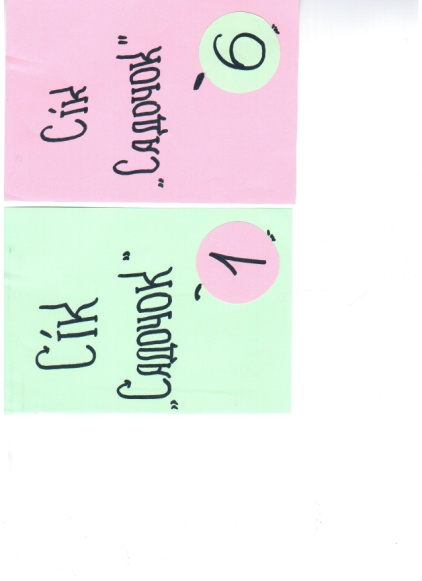 Сік
„Садочок"
1
Сік
„Садочок"
6